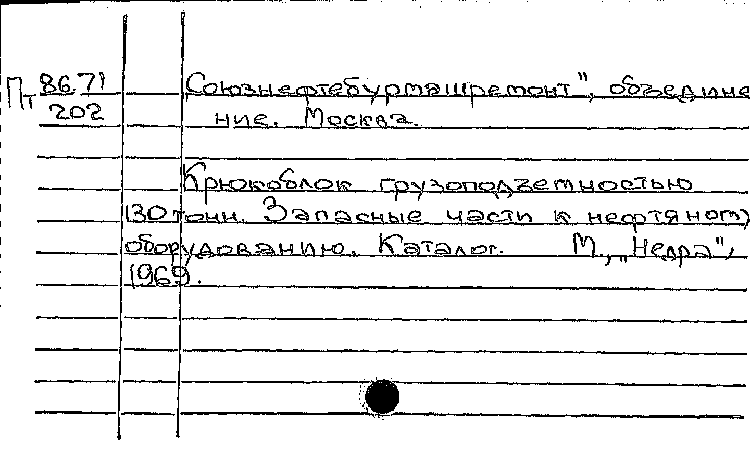 Пт 86.71 Союзнефтебурмашремонт", объедине
202 ние. Москва.
Крюкоблок грузоподъемностью
130 тонн. Запасные части к нефтяному
оборудованию. Каталог. М., „Недра",
1969.